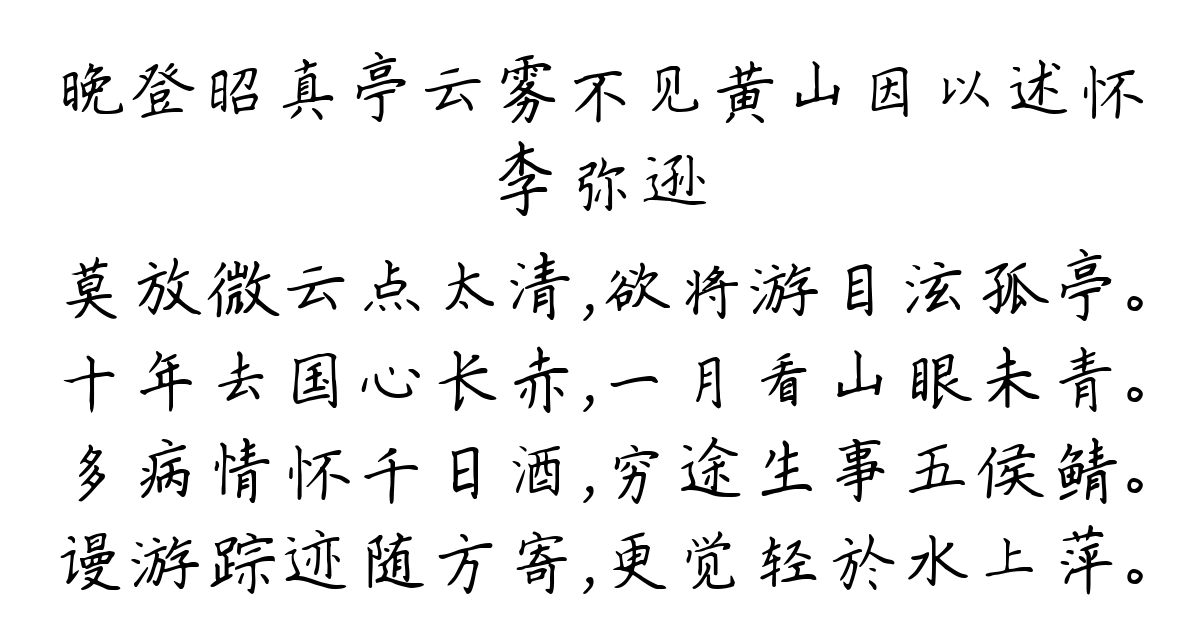 晚登昭真亭云雾不见黄山因以述怀
李弥逊
莫放微云点太清,欲将游目泫孤亭。
十年去国心长赤,一月看山眼未青。
多病情怀千日酒,穷途生事五侯鲭。
谩游踪迹随方寄,更觉轻於水上萍。